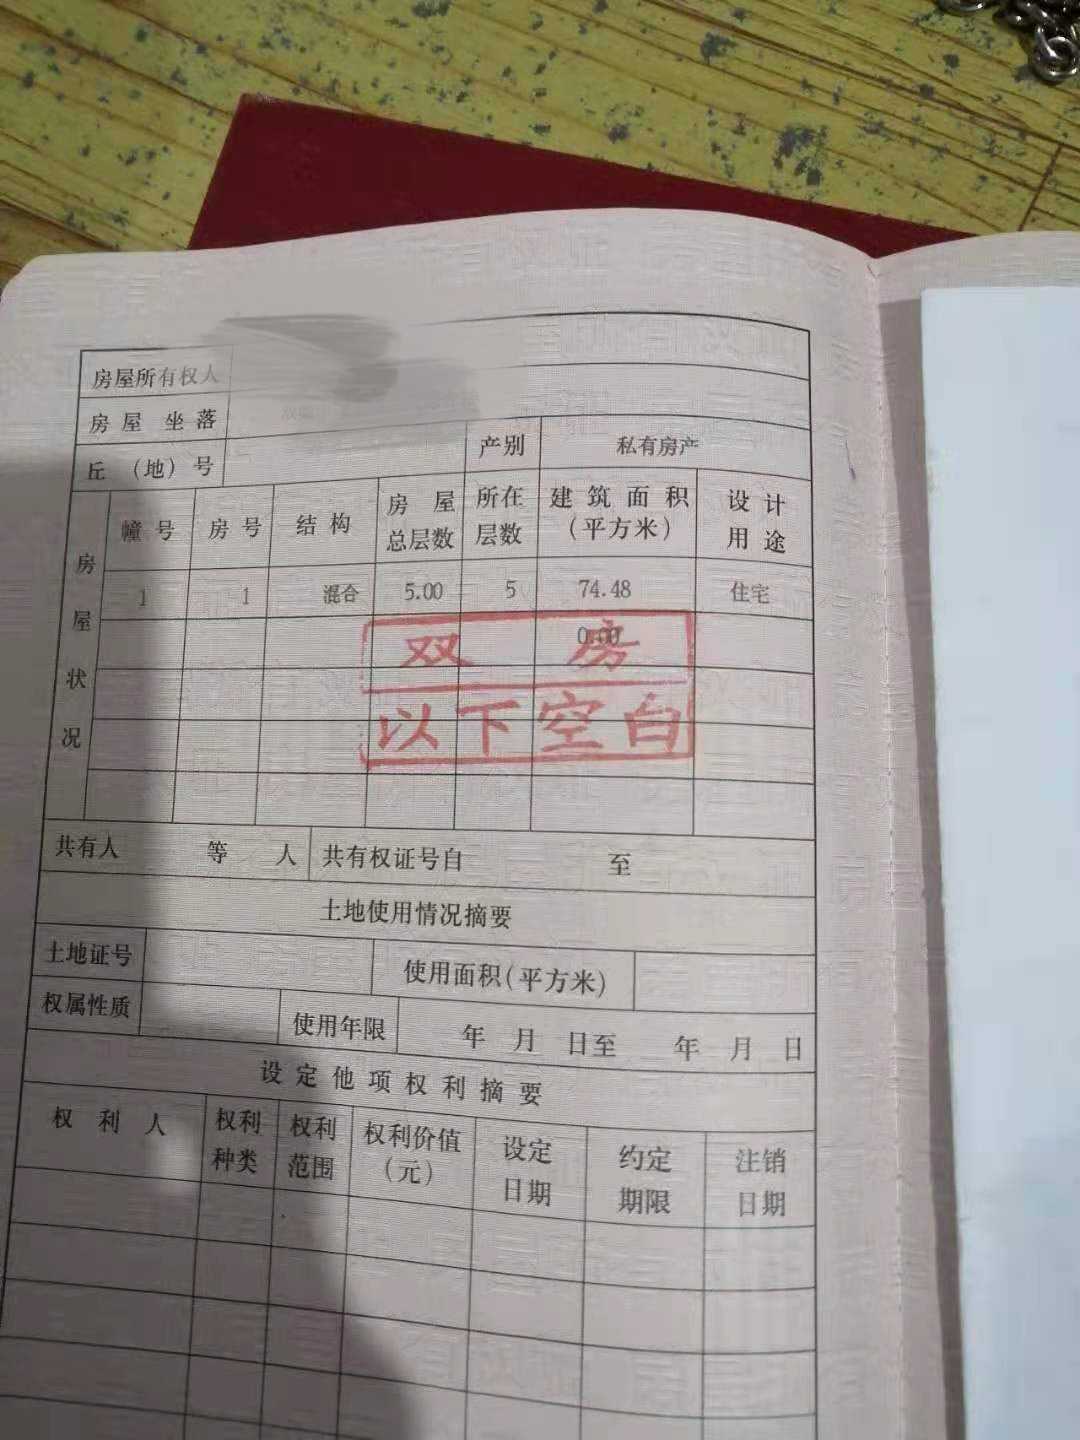 房屋所有权人
房屋 坐落
丘 (地) 号 产别 私有房产
房屋状况 幢号 房号 结构 房屋总层数 所在层数 建筑面积(平方米) 设计用途
1 1 混合 5.00 5 74.48 住宅
0.00
双 房
以下空白
共有人 等 人 共有权证号自 至
土地使用情况摘要
土地证号 使用面积(平方米)
权属性质 使用年限 年 月 日至 年 月 日
设定他项权利摘要
权利人 权利种类 权利范围 权利价值(元) 设定日期 约定期限 注销日期